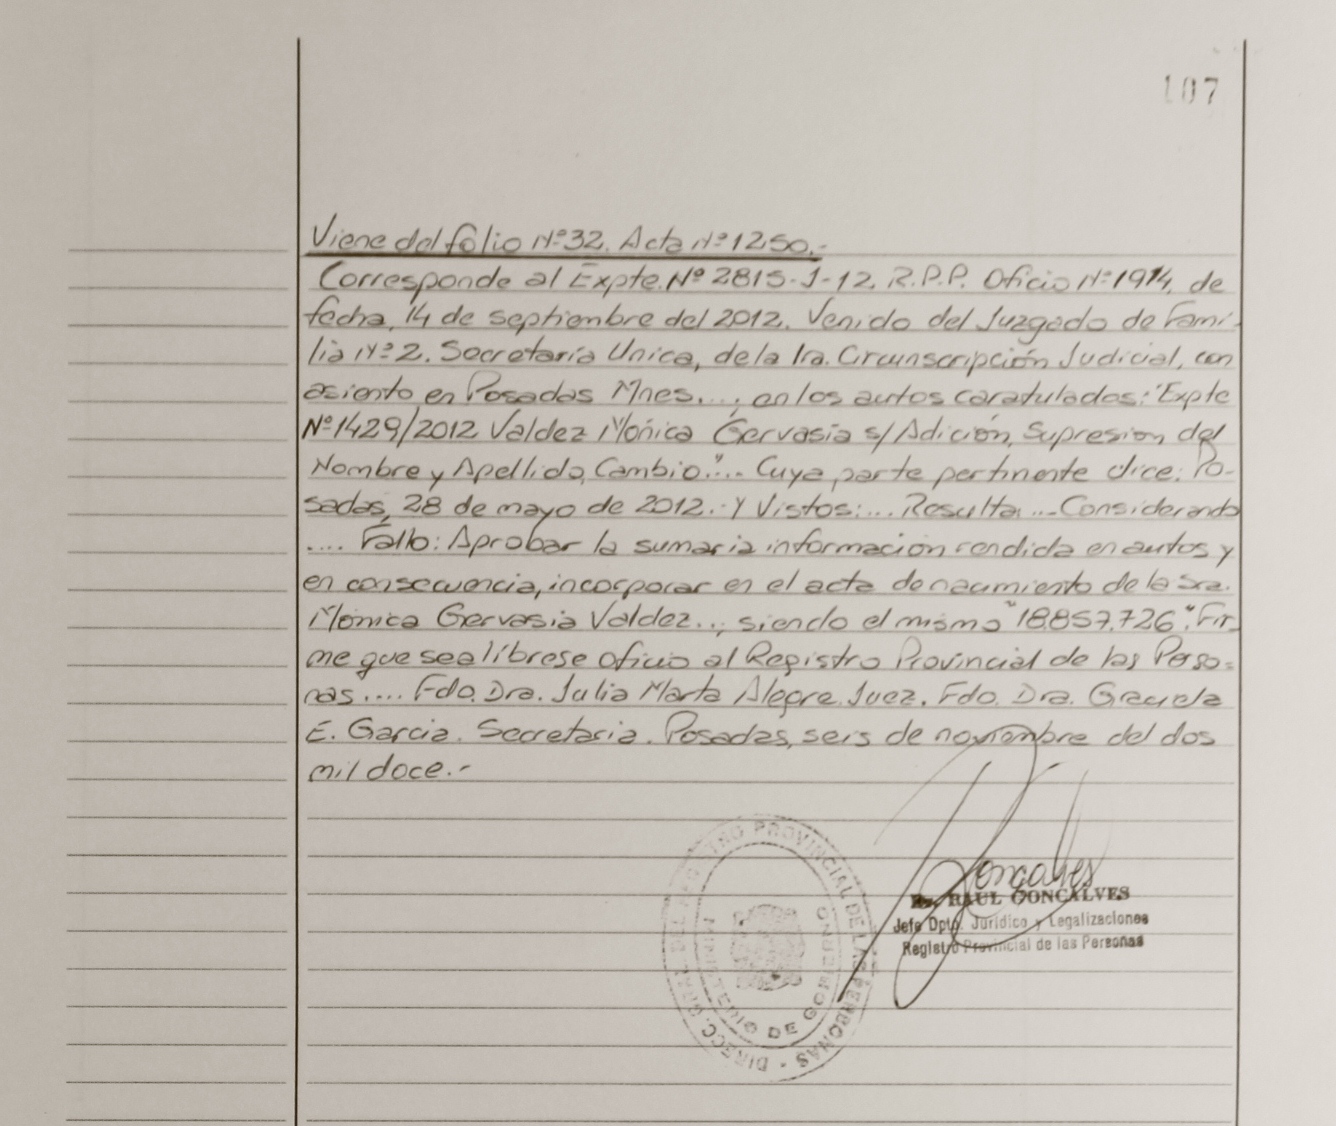 107
Viene del folio Nº32. Acta Nº1250.-
Corresponde al Expte. Nº 2815-J-12. R.P.P. Oficio Nº1914, de
fecha, 14 de septiembre del 2012. Venido del Juzgado de Fami-
lia Nº2. Secretaría Unica, de la 1ra. Circunscripción Judicial, con
asiento en Posadas Mnes...; en los autos caratulados: "Expte
Nº1429/2012 Valdez Mónica Gervasia s/Adición, Supresion del
Nombre y Apellido, Cambio".... Cuya parte pertinente dice: Po-
sadas, 28 de mayo de 2012.- Y Vistos:... Resulta: ... Considerando
.... Fallo: Aprobar la sumaria información rendida en autos y
en consecuencia, incorporar en el acta de nacimiento de la Sra.
Mónica Gervasia Valdez..; siendo el mismo "18.857.726". Fir-
me que sea líbrese oficio al Registro Provincial de las Perso=
nas.... Fdo. Dra. Julia Marta Alegre. Juez. Fdo. Dra. Graciela
E. Garcia. Secretaria. Posadas, seis de noviembre del dos
mil doce.-
Goncalves
Dr. RAUL GONCALVES
Jefe Dpto. Jurídico y Legalizaciones
Registro Provincial de las Personas
DIRECC. GRAL. DEL REGISTRO PROVINCIAL DE LAS PERSONAS -
MINISTERIO DE GOBIERNO